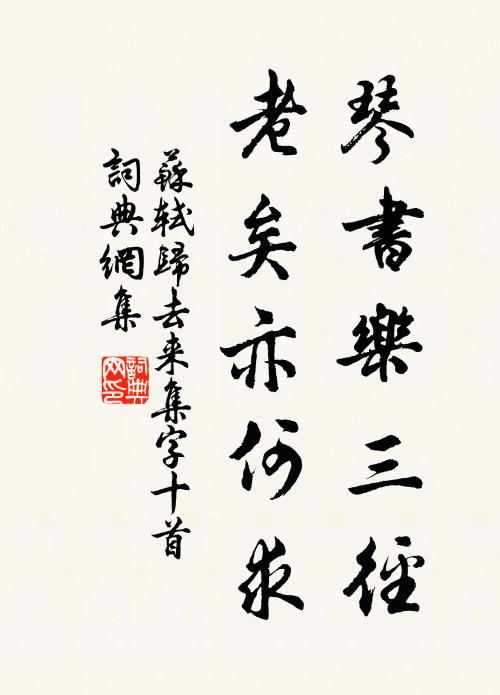 琴書樂三徑
老矣亦何求
蘇軾歸去来集字十首
詞典網集
詞典网印